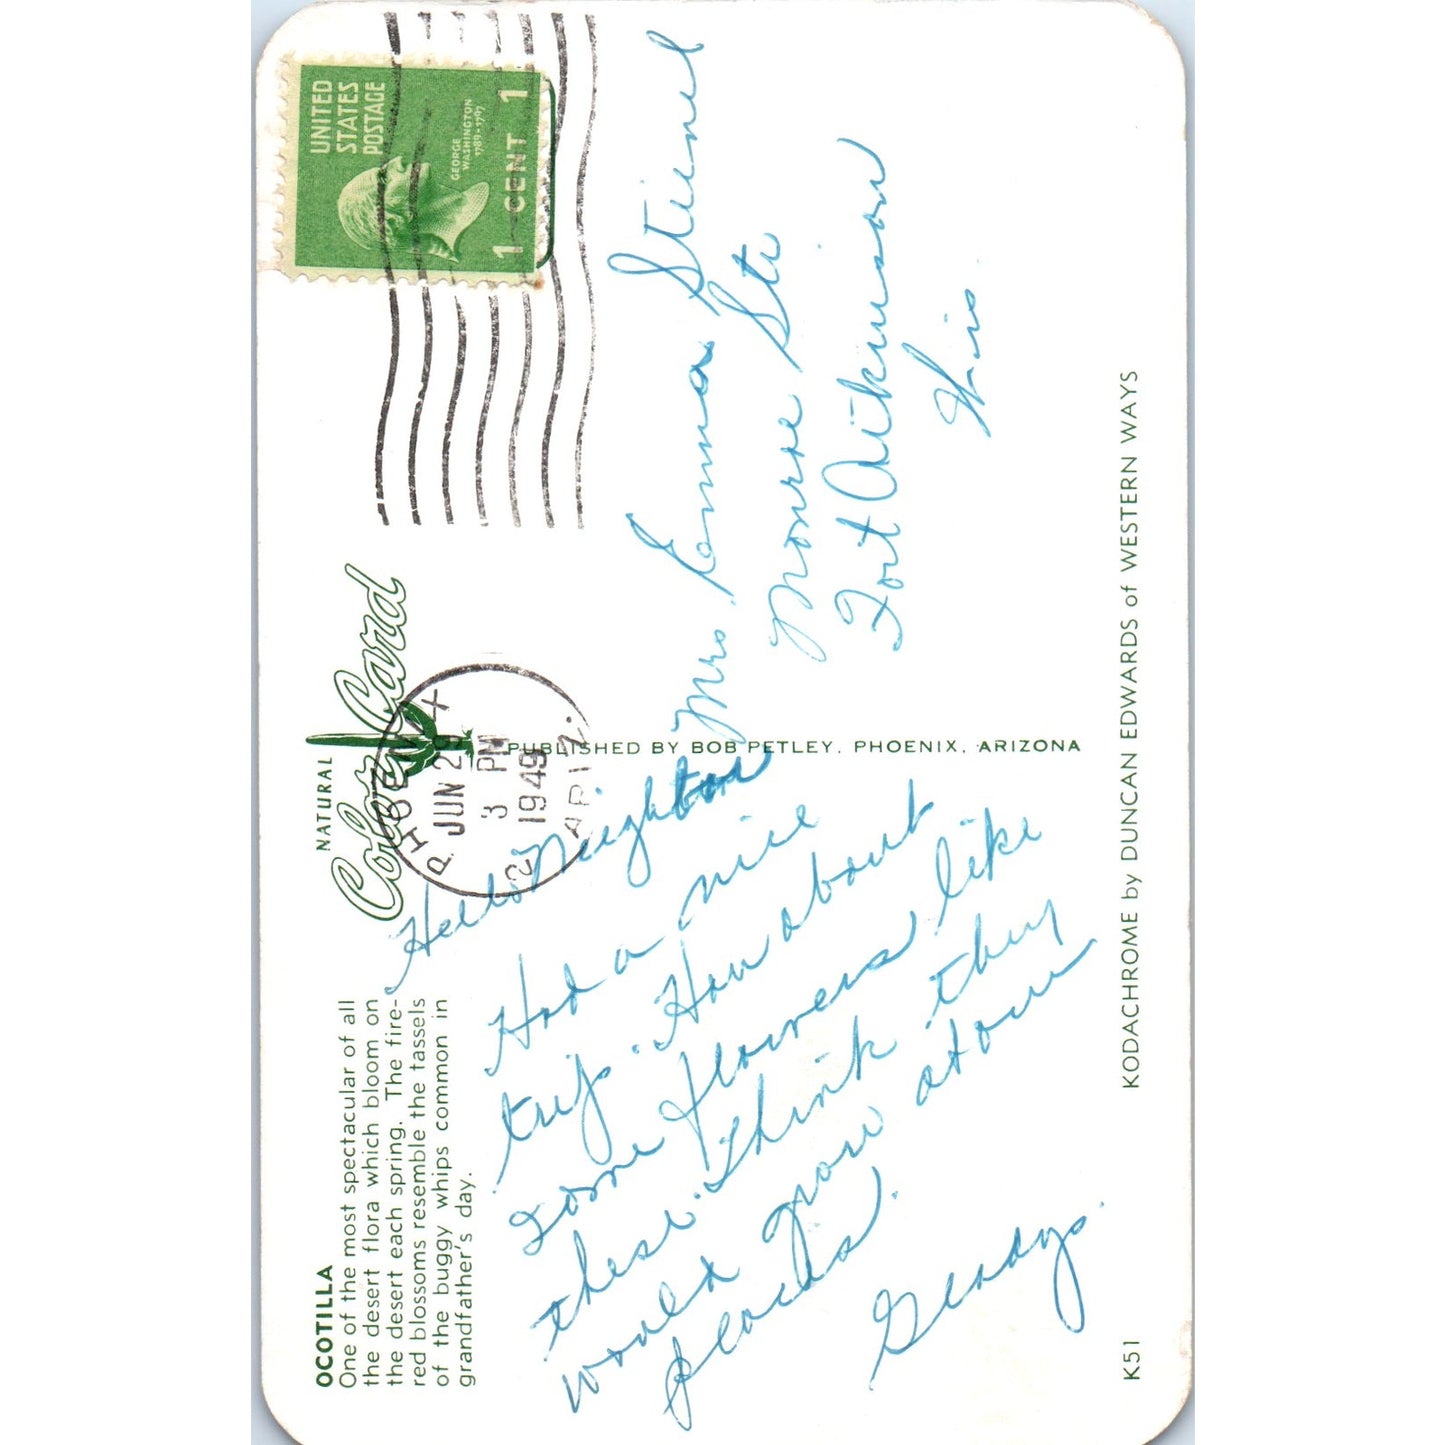 OCOTILLA
One of the most spectacular of all
the desert flora which bloom on
the desert each spring. The fire-
red blossoms resemble the tassels
of the buggy whips common in
grandfather's day.
NATURAL
Color Card
PHOENIX
JUN 29
3 PM
1949
2 ARIZ.
UNITED
STATES
POSTAGE
GEORGE
WASHINGTON
1789-1797
1 CENT 1
Hello Neighbor
Had a nice
trip. How about
some flowers like
these. Think they
would grow at our
places.
Gladys.
PUBLISHED BY BOB PETLEY, PHOENIX, ARIZONA
Mrs. Emma Stienel
Monroe St.
Fort Atkinson
Wis.
K51
KODACHROME by DUNCAN EDWARDS of WESTERN WAYS